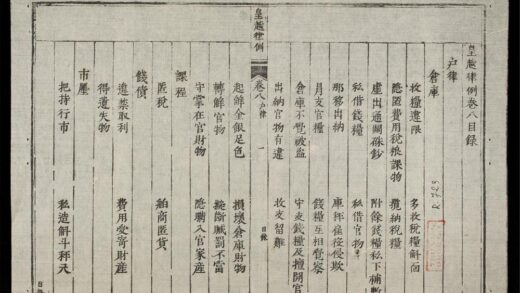 皇越律例卷八目錄
戶律
倉庫
收糧違限 多收稅糧斛面
隱匿費用稅粮課物 攬納稅糧
虛出通關硃鈔 附餘錢糧私下補數
私借錢糧 私借官物
那移出納 庫秤雇役侵欺
月支官糧 錢糧互相覺察
倉庫不覺被盜 守支錢糧及擅開官
出納官物有違 收支留難
皇越律例 卷八 戶律 一 目錄
起解金銀足色 損壞倉庫財物
轉解官物 擬斷贓罰不當
守掌在官財物 隱瞞入官家產
課程
匿稅 舶商匿貨
錢債
違禁取利 費用受寄財產
得遺失物
市廛
把持行市 私造斛斗秤尺
目錄
R.729